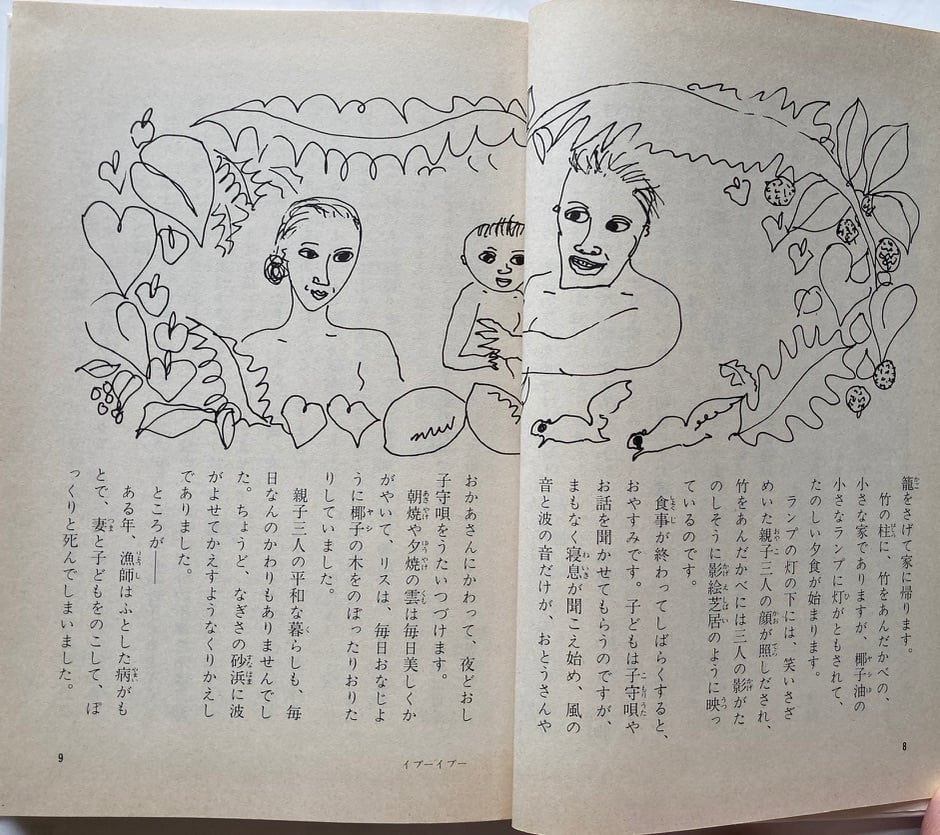 籠をさげて家に帰ります。
竹の柱に、竹をあんだかべの、
小さな家でありますが、椰子油の
小さなランプに灯がともされて、
たのしい夕食が始まります。
ランプの灯の下には、笑いさざ
めいた親子三人の顔が照しだされ、
竹をあんだかべには三人の影がた
のしそうに影絵芝居のように映っ
ているのです。
食事が終わってしばらくすると、
おやすみです。子どもは子守唄や
お話を聞かせてもらうのですが、
まもなく寝息が聞こえ始め、風の
音と波の音だけが、おとうさんや
8
おかあさんにかわって、夜どおし
子守唄をうたいつづけます。
朝焼や夕焼の雲は毎日美しくか
がやいて、リスは、毎日おなじよ
うに椰子の木をのぼったりおりた
りしていました。
親子三人の平和な暮らしも、毎
日なんのかわりもありませんでし
た。ちょうど、なぎさの砂浜に波
がよせてかえすようなくりかえし
でありました。
ところが――
ある年、漁師はふとした病がも
とで、妻と子どもをのこして、ぽ
っくりと死んでしまいました。
イブーイブー
9